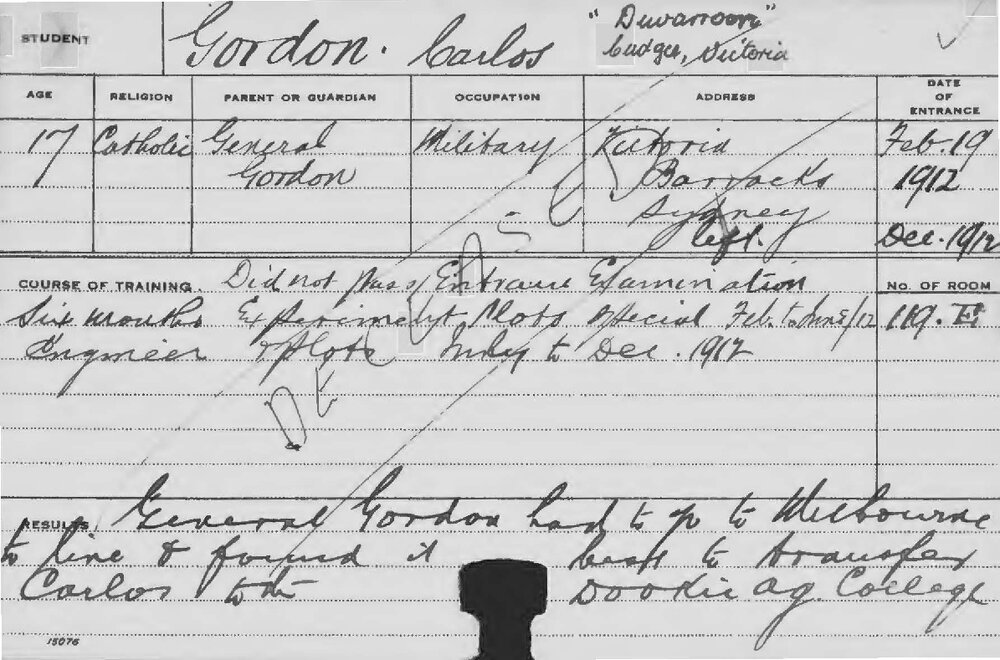 STUDENT Gordon. Carlos
"Duvarroon"
Cudgee, Victoria
AGE RELIGION PARENT OR GUARDIAN OCCUPATION ADDRESS DATE OF ENTRANCE
17 Catholic General Military Victoria Feb. 19
Gordon Barracks 1912
Sydney
left. Dec. 19/12
COURSE OF TRAINING. Did not pass Entrance Examination No. OF ROOM
Six months Experiment Plots special Feb. to June/12 119.
Engineer & plots July to Dec. 1912
DECEASED
RESULTS General Gordon had to go to Melbourne
to live & found it best to transfer
Carlos to the Dookie Ag. College
15076